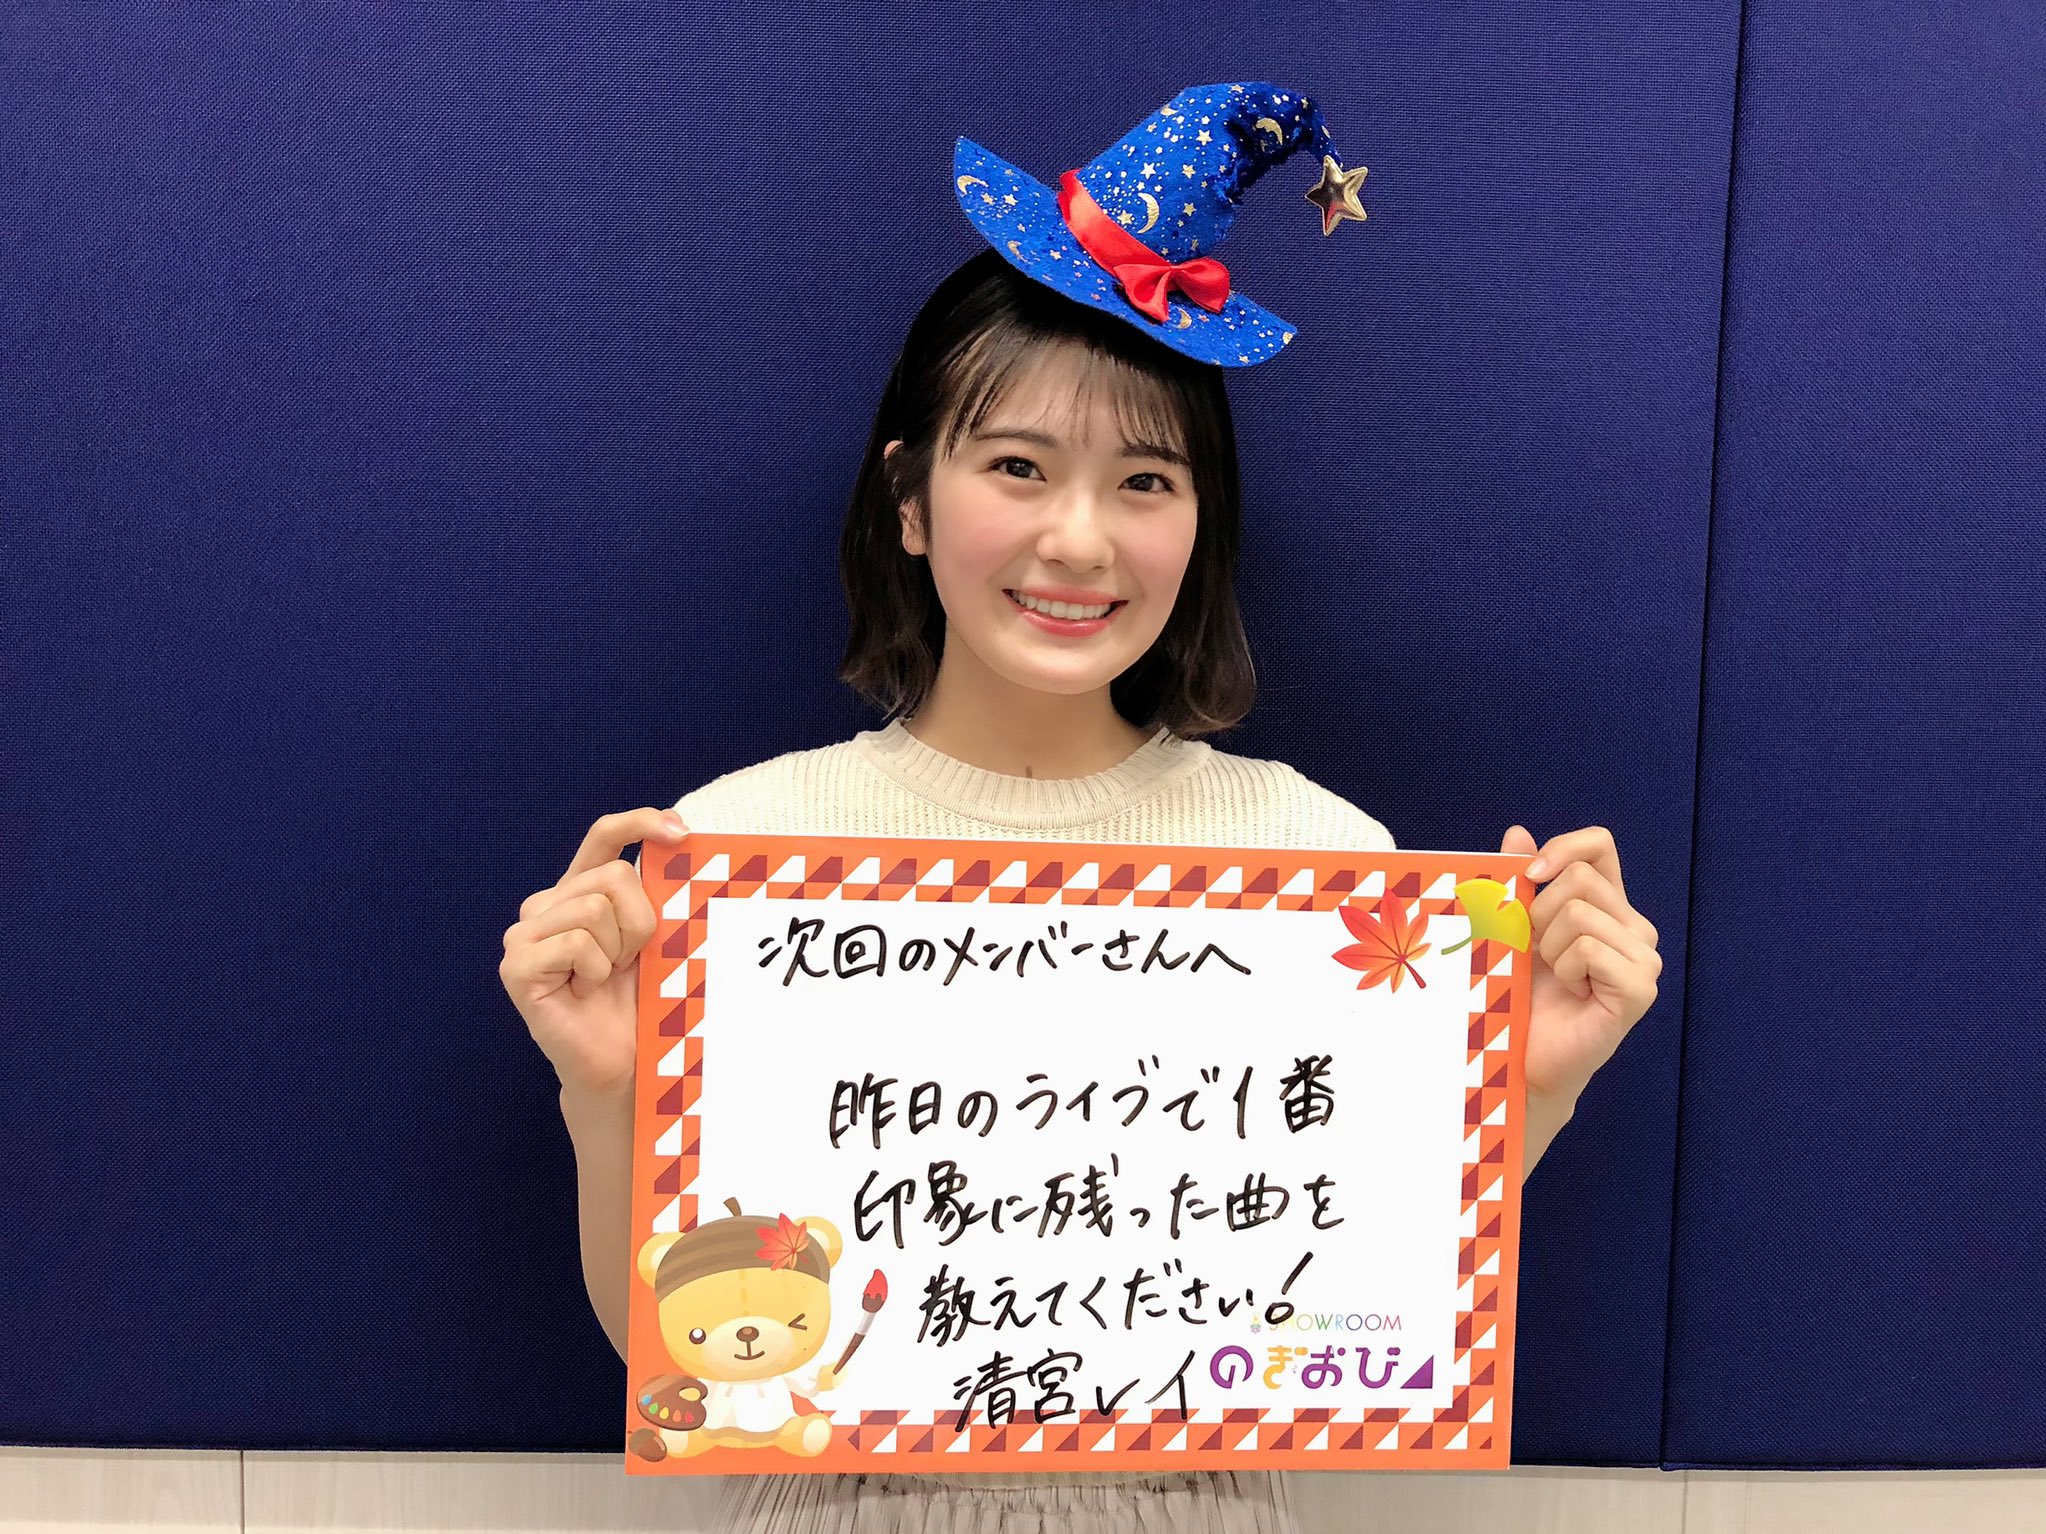 次回のメンバーさんへ
昨日のライブで1番
印象に残った曲を
教えてください!
SHOWROOM
清宮レイ
のぎおび